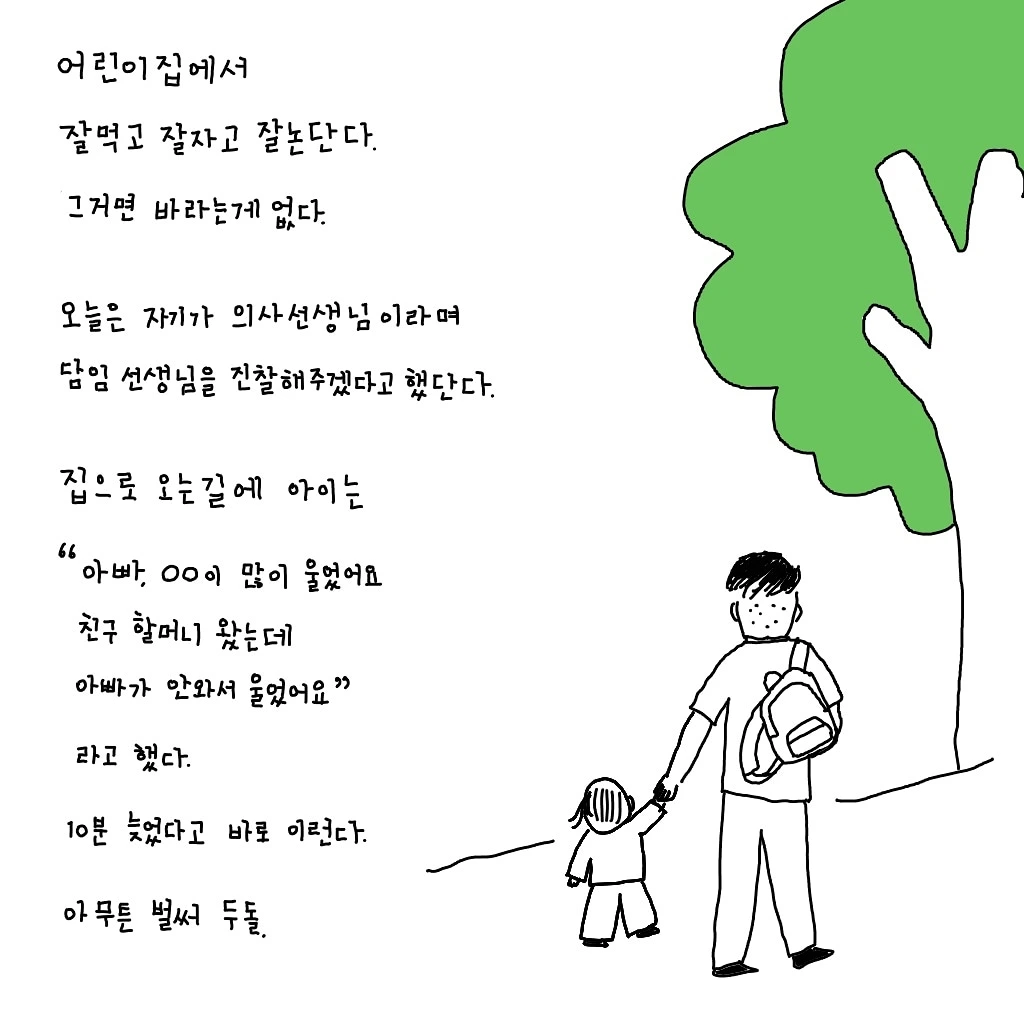 어린이집에서
잘먹고 잘자고 잘논단다.
그거면 바라는게 없다.
오늘은 자기가 의사선생님이라며
담임 선생님을 진찰해주겠다고 했단다.
집으로 오는길에 아이는
“아빠, OO이 많이 울었어요
친구 할머니 왔는데
아빠가 안와서 울었어요”
라고 했다.
10분 늦었다고 바로 이런다.
아무튼 벌써 두돌.